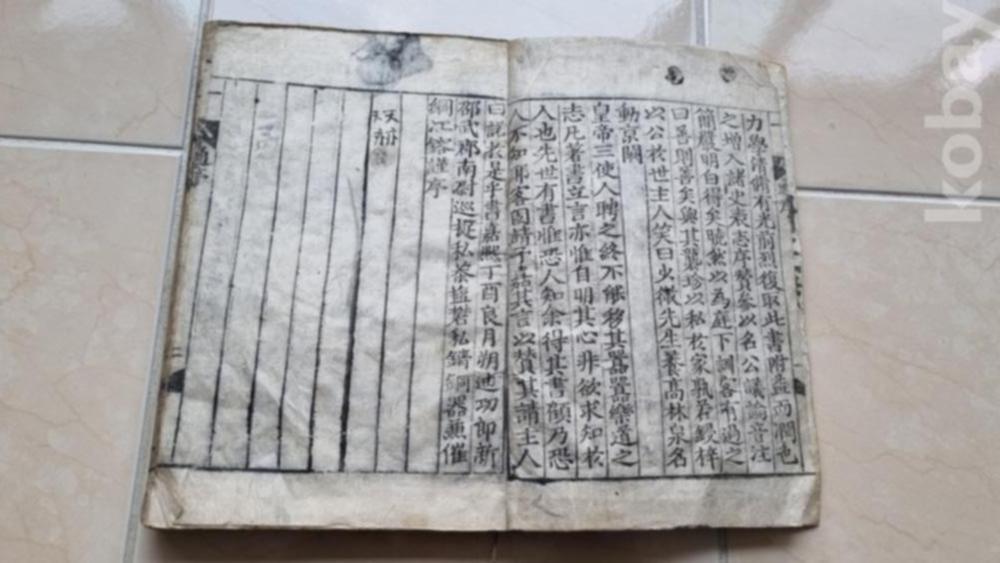 力學清飭有光前烈復取此書附益而潤色
之增入諸史表志序贊參以名公議論音注
簡嚴明白得失然以為庭下訓客有過之
曰善則善矣與其襲珍以私於家孰若鋟梓
以公於世主人笑曰少微先生養高林泉名
動京闕
皇帝三使人聘之終不能移其囂囂樂道之
志凡著書立言亦惟自明其心非欲求知於
人也先世有書惟恐人知余得其書顧乃恐
人不知耶客固請予嘉其言以贊其請主人
曰諾於是乎書嘉熙丁酉良月朔迪功郎新
邵武郡南尉巡捉私茶塩礬私鑄銅器兼催
綱江鎔謹序
kobay